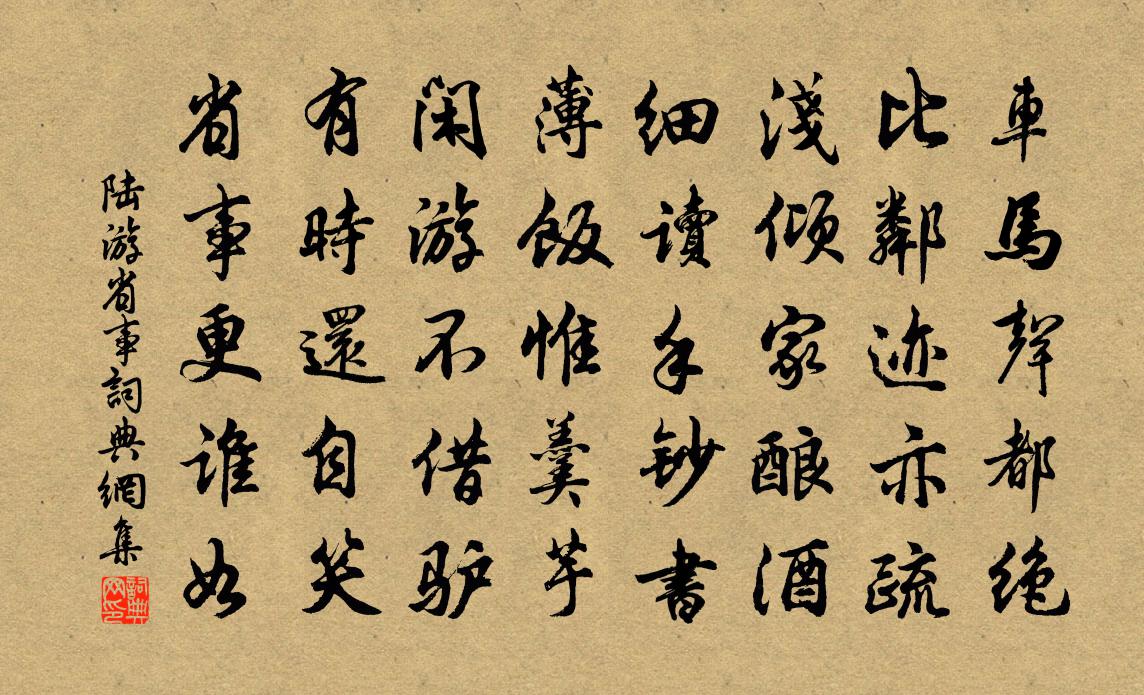 車馬聲都絶
比鄰迹亦疏
淺傾家酿酒
細讀手鈔書
薄飯惟羹芋
閑游不借驴
有時還自笑
省事更誰如
陆游省事詞典網集
詞典网印